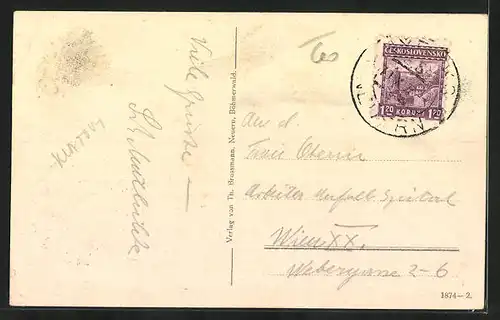 Viele Grüsse
Klattau
Verlag von Th. Brussmann, Neuern, Böhmerwald.
ČESKOSLOVENSKO
1.20 KORUNA 1.20
An d.
Frau Oberin
Arbeiter Unfall Spital
Wien XX.
Webergasse 2-6
1874—2.